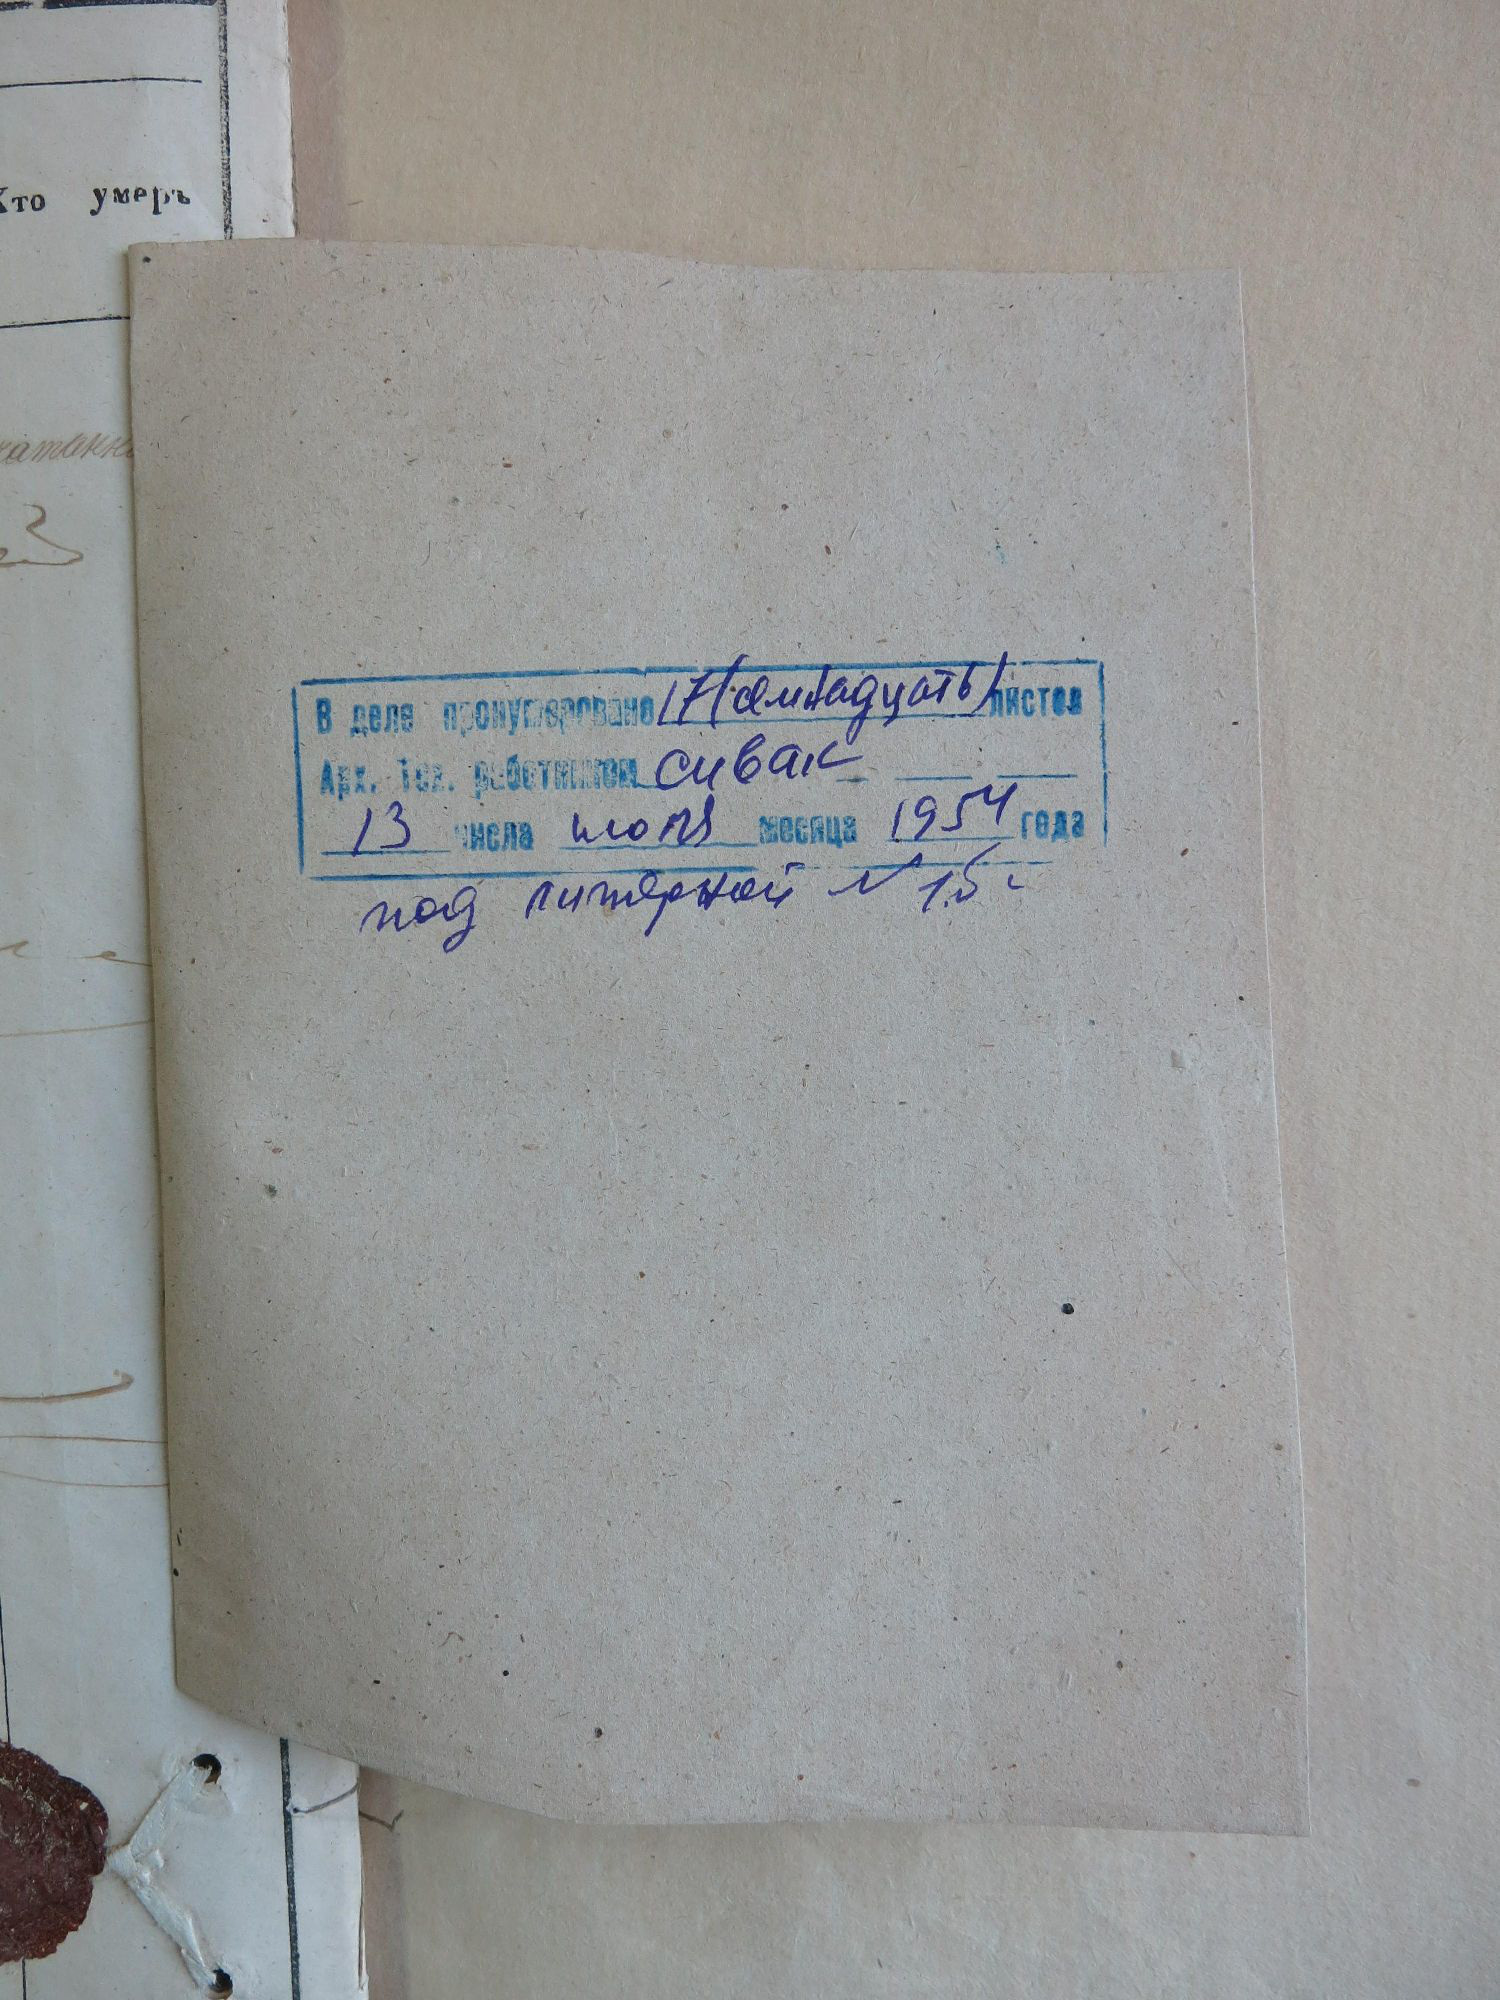 Кто умеръ
В деле пронумеровано 17 (семнадцать) листов
Арх. Тех. работником Сивак
13 числа июля месяца 1954 года
под литерной № 15.